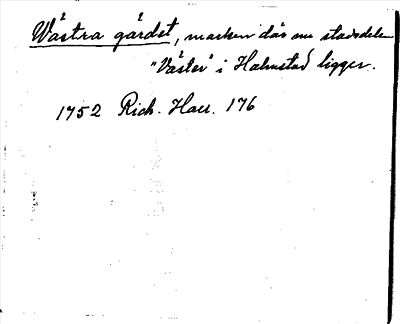 Wåstra gårdet, marken där om stadsdelen
"Väster" i Halmstad ligger.
1752 Rich. Hall. 176